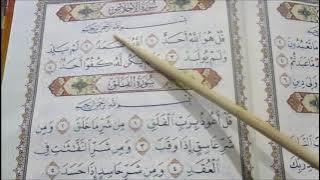 سُورَةُ الْإِخْلَاصِ
قُلْ هُوَ اللَّهُ أَحَدٌ ١ اللَّهُ الصَّمَدُ ٢ لَمْ يَلِدْ
وَلَمْ يُولَدْ ٣ وَلَمْ يَكُن لَّهُ كُفُوًا أَحَدٌ ٤
سُورَةُ الْفَلَقِ
قُلْ أَعُوذُ بِرَبِّ الْفَلَقِ ١ مِن شَرِّ مَا خَلَقَ ٢ وَمِن
شَرِّ غَاسِقٍ إِذَا وَقَبَ ٣ وَمِن شَرِّ النَّفَّاثَاتِ فِي
الْعُقَدِ ٤ وَمِن شَرِّ حَاسِدٍ إِذَا حَسَدَ ٥